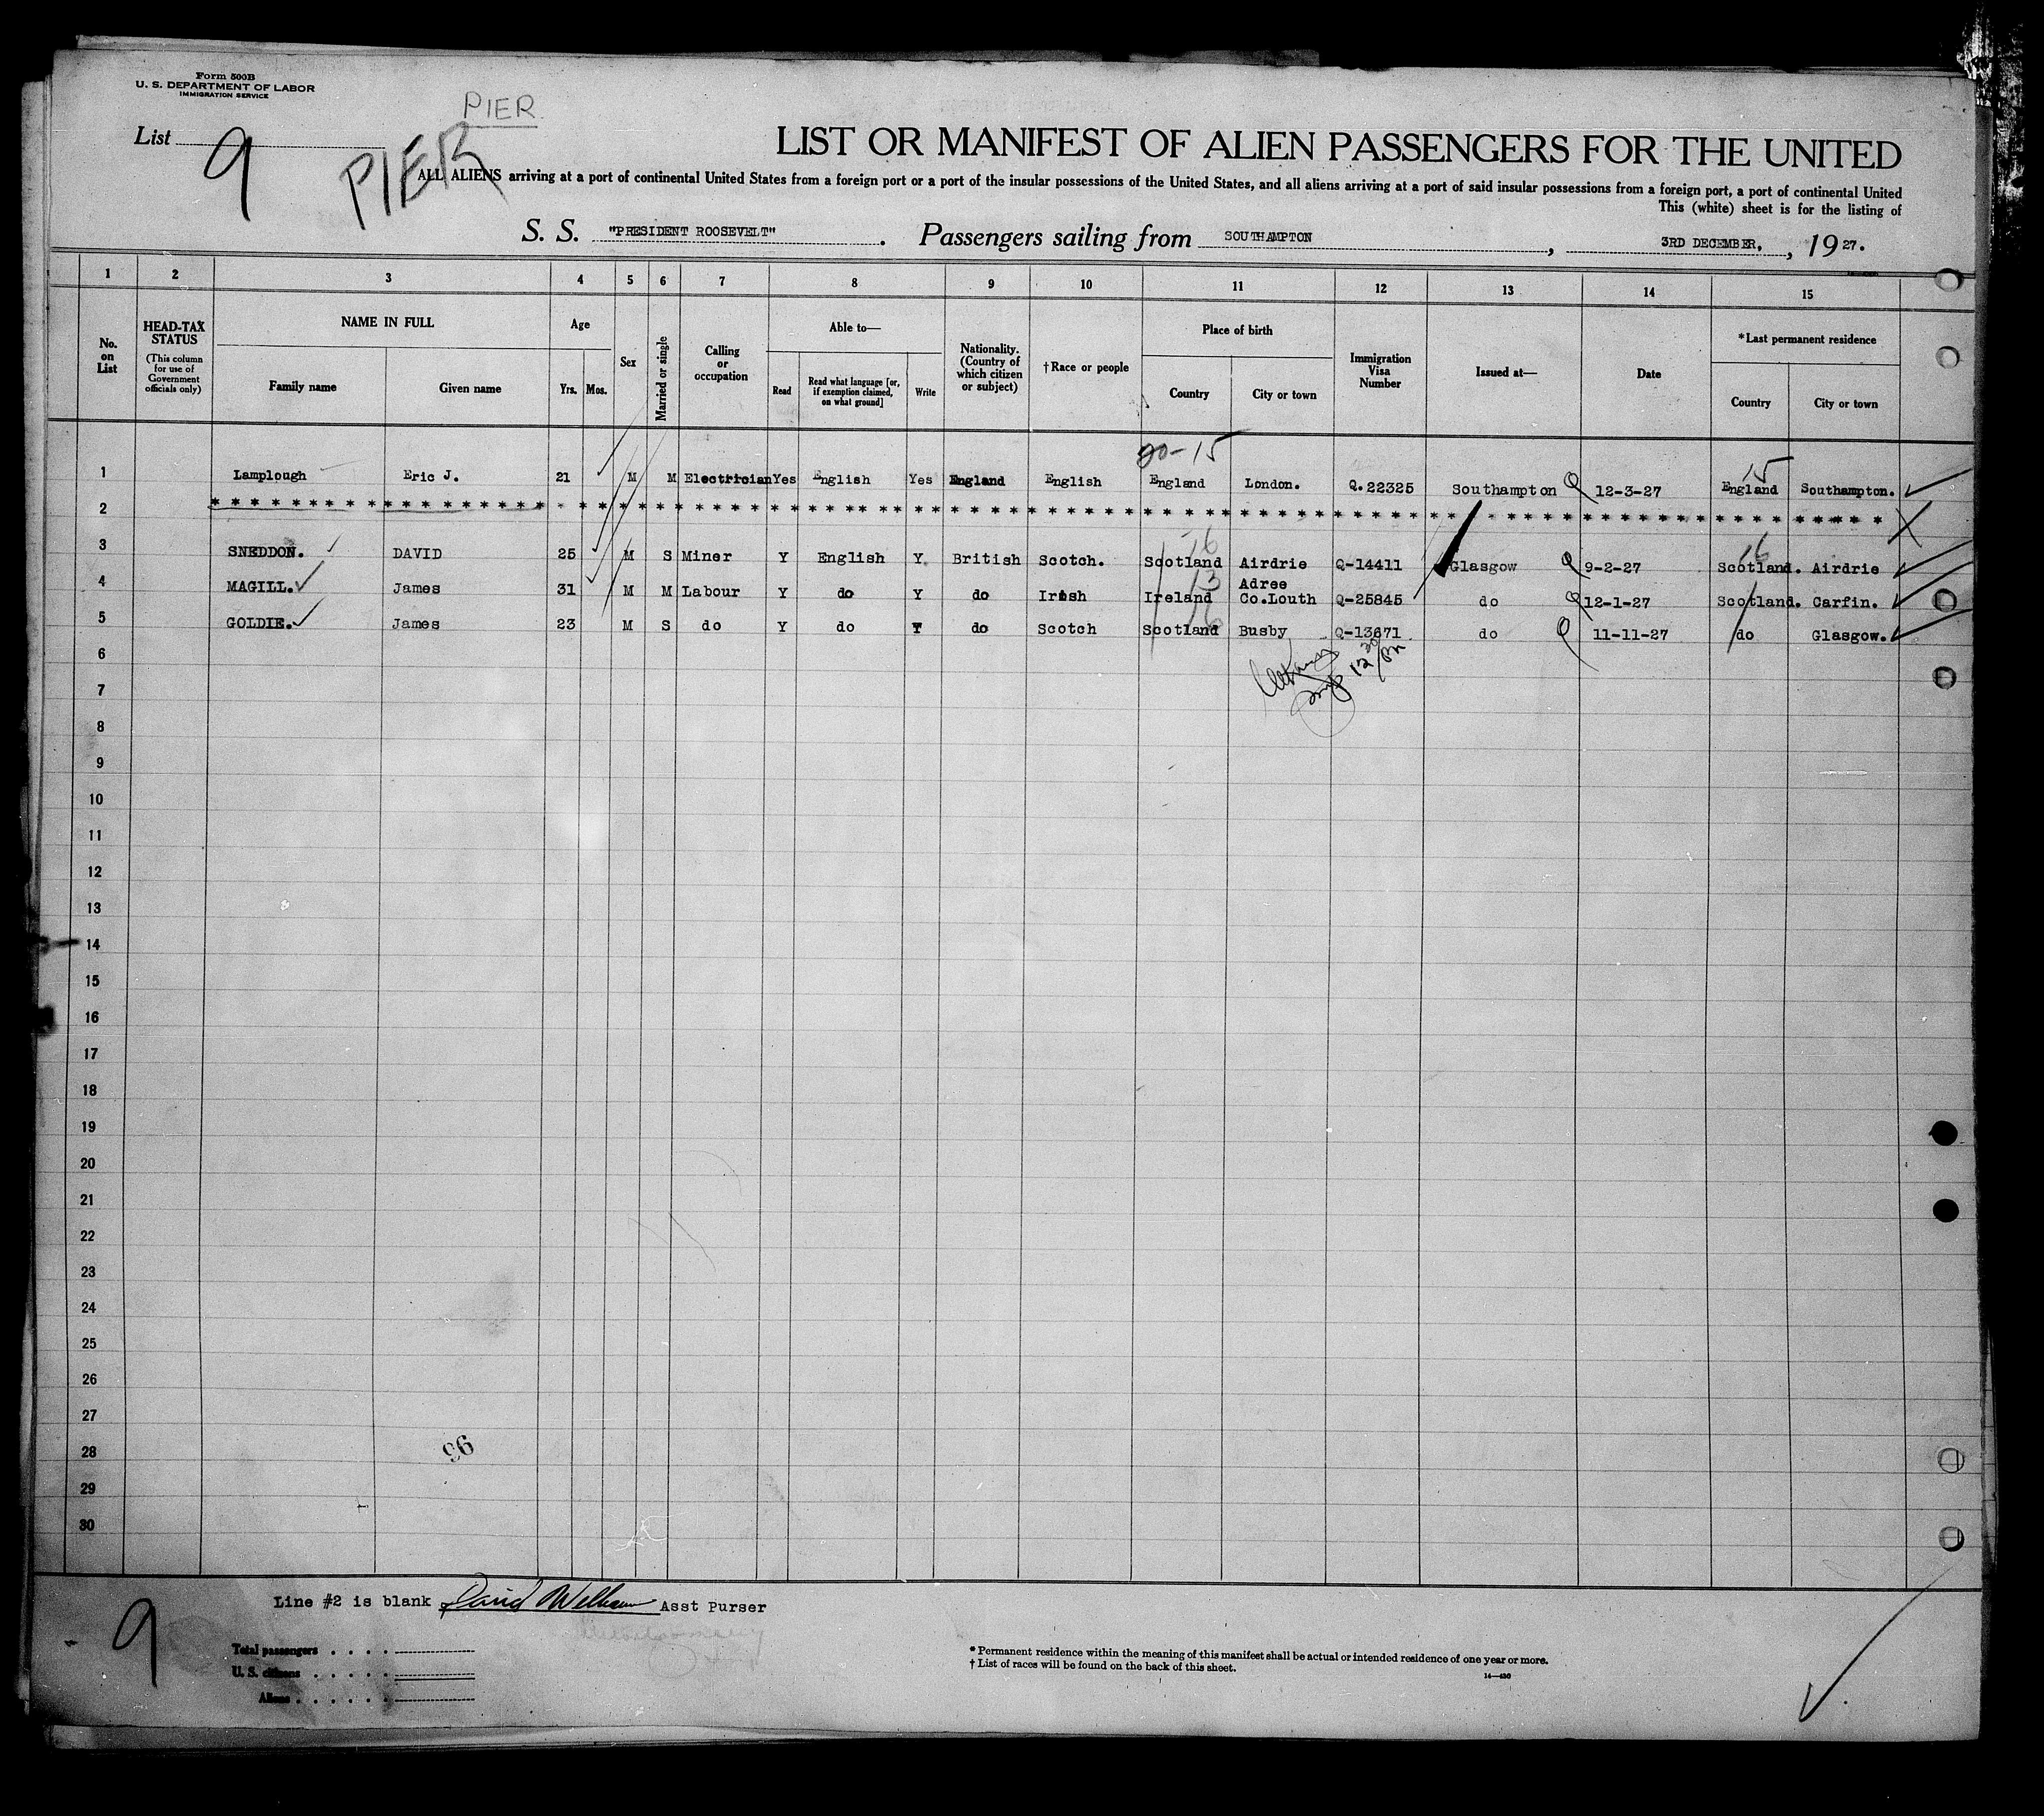 Form 500B
U. S. DEPARTMENT OF LABOR
IMMIGRATION SERVICE
PIER
List 9
PIER
LIST OR MANIFEST OF ALIEN PASSENGERS FOR THE UNITED
ALL ALIENS arriving at a port of continental United States from a foreign port or a port of the insular possessions of the United States, and all aliens arriving at a port of said insular possessions from a foreign port, a port of continental United
This (white) sheet is for the listing of
S. S. "PRESIDENT ROOSEVELT". Passengers sailing from SOUTHAMPTON, 3RD DECEMBER, 1927.
1 2 3 4 5 6 7 8 9 10 11 12 13 14 15
No. on List
HEAD-TAX STATUS
(This column for use of Government officials only)
NAME IN FULL
Family name
Given name
Age
Yrs. Mos.
Sex
Married or single
Calling or occupation
Able to—
Read
Read what language [or, if exemption claimed, on what ground]
Write
Nationality. (Country of which citizen or subject)
†Race or people
Place of birth
Country
City or town
Immigration Visa Number
Issued at—
Date
*Last permanent residence
Country
City or town
20-15
15
1 Lamplough Eric J. 21 M M Electrician Yes English Yes England English England London. Q.22325 Southampton 12-3-27 England Southampton.
2 * * * * * * * * * * * * * * * * * * * * * * * * * * * * * *
16 16
3 SNEDDON. DAVID 25 M S Miner Y English Y. British Scotch. Scotland Airdrie Q-14411 Glasgow 9-2-27 Scotland. Airdrie
13
4 MAGILL. James 31 M M Labour Y do Y do Irish Ireland Adree Co.Louth Q-25845 do 12-1-27 Scotland. Carfin.
16
5 GOLDIE. James 23 M S do Y do Y do Scotch Scotland Busby Q-13671 do 11-11-27 do Glasgow.
6
7
8
9
10
11
12
13
14
15
16
17
18
19
20
21
22
23
24
25
26
27
28
29
30
96
Line #2 is blank David Asst Purser
9
Total passengers
U. S. citizens
Aliens
* Permanent residence within the meaning of this manifest shall be actual or intended residence of one year or more.
† List of races will be found on the back of this sheet.
14—430